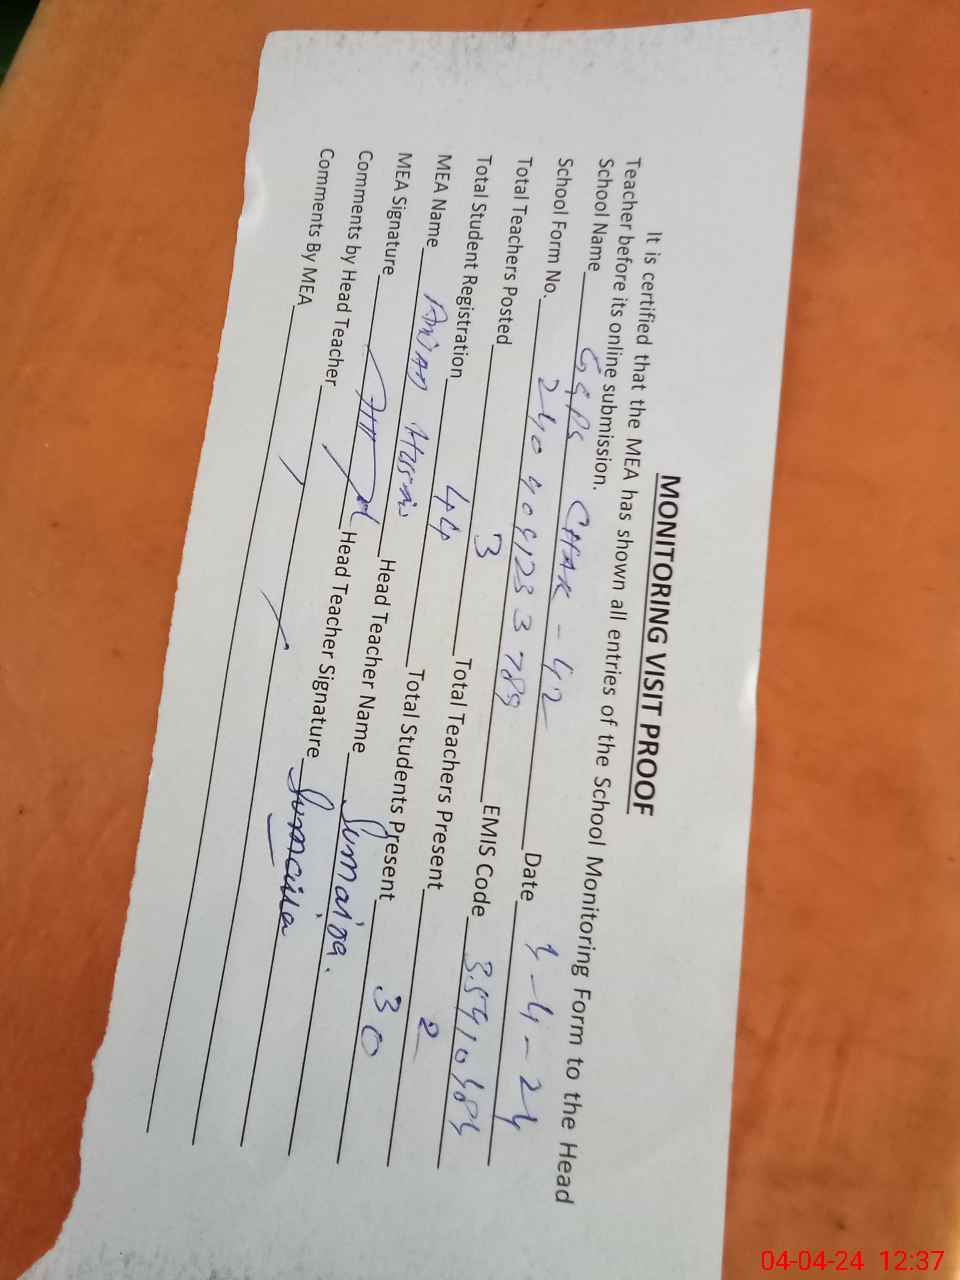 MONITORING VISIT PROOF
It is certified that the MEA has shown all entries of the School Monitoring Form to the Head
Teacher before its online submission.
School Name GGPS CHAK - 42
School Form No. Date 4-4-24
Total Teachers Posted 3 EMIS Code
Total Student Registration 44 Total Teachers Present 2
MEA Name Total Students Present 30
MEA Signature Head Teacher Name Sumaira.
Comments by Head Teacher Head Teacher Signature Sumaira
Comments By MEA
04-04-24 12:37